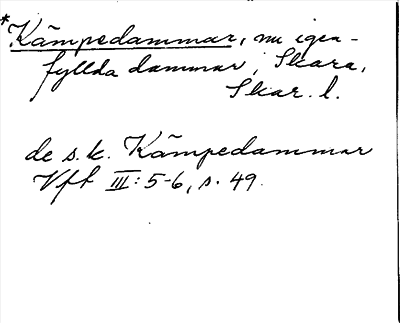 *Kämpedammar, nu igen-
fyllda dammar i Skara,
Skar. l.
de s.k. Kämpedammar
Vft III: 5-6, s. 49.